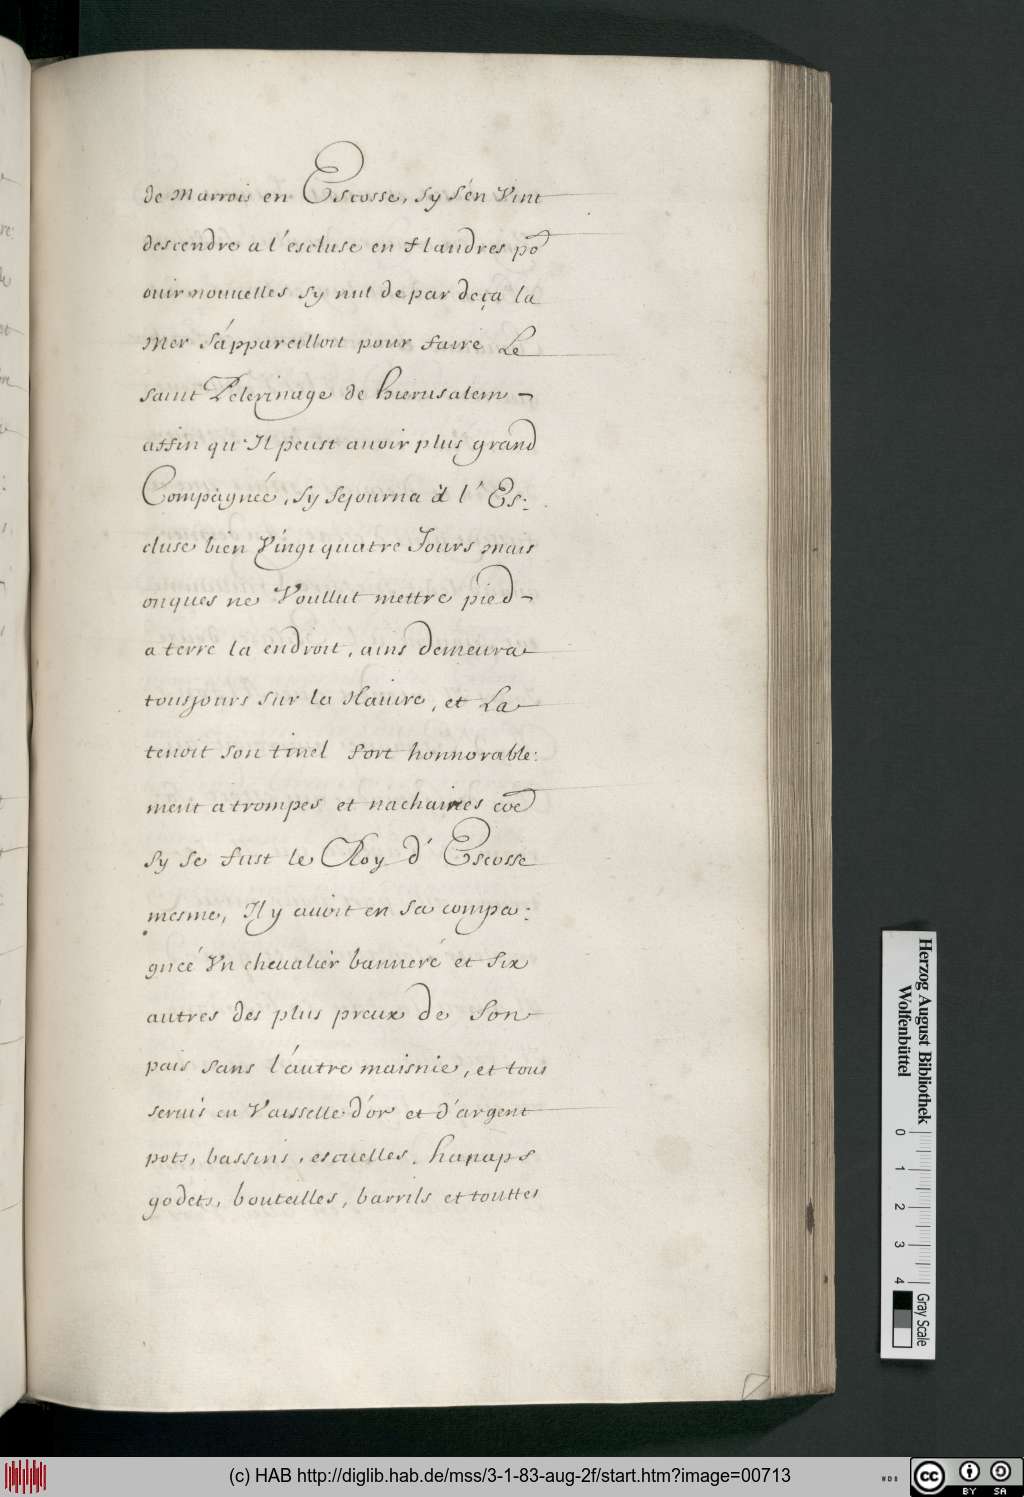 de Marrois en Escosse, sy s'en vint
descendre a l'escluse en flandres po
ouir nouuelles sy nul de par deça la
Mer s'áppareilloit pour faire Le
saint Pelerinage de hierusalem ¬
affin qu'Il peust auoir plus grand
Compagnée, sy sejourna à l'Es:
cluse bien Vingt quatre Jours mais
onques ne Voullut mettre pied ¬
a terre la endroit, ains demeura
tousjours sur la Nauire, et La
tenoit son tinel fort honnorable:
ment a trompes et nachaires coe
sy se fust le Roy d'Escosse
mesme, Il y auoit en sa compa:
gneé Vn cheualier banneré et six
autres des plus preux de son
pais sans l'áutre maisnie, et tous
seruis en Vaisselle d'or et d'argent
pots, bassins, escuelles, hanaps
godets, bouteilles, barrils et touttes
Herzog August Bibliothek
Wolfenbüttel
0 1 2 3 4
Gray Scale
(c) HAB http://diglib.hab.de/mss/3-1-83-aug-2f/start.htm?image=00713
WDB
cc BY SA